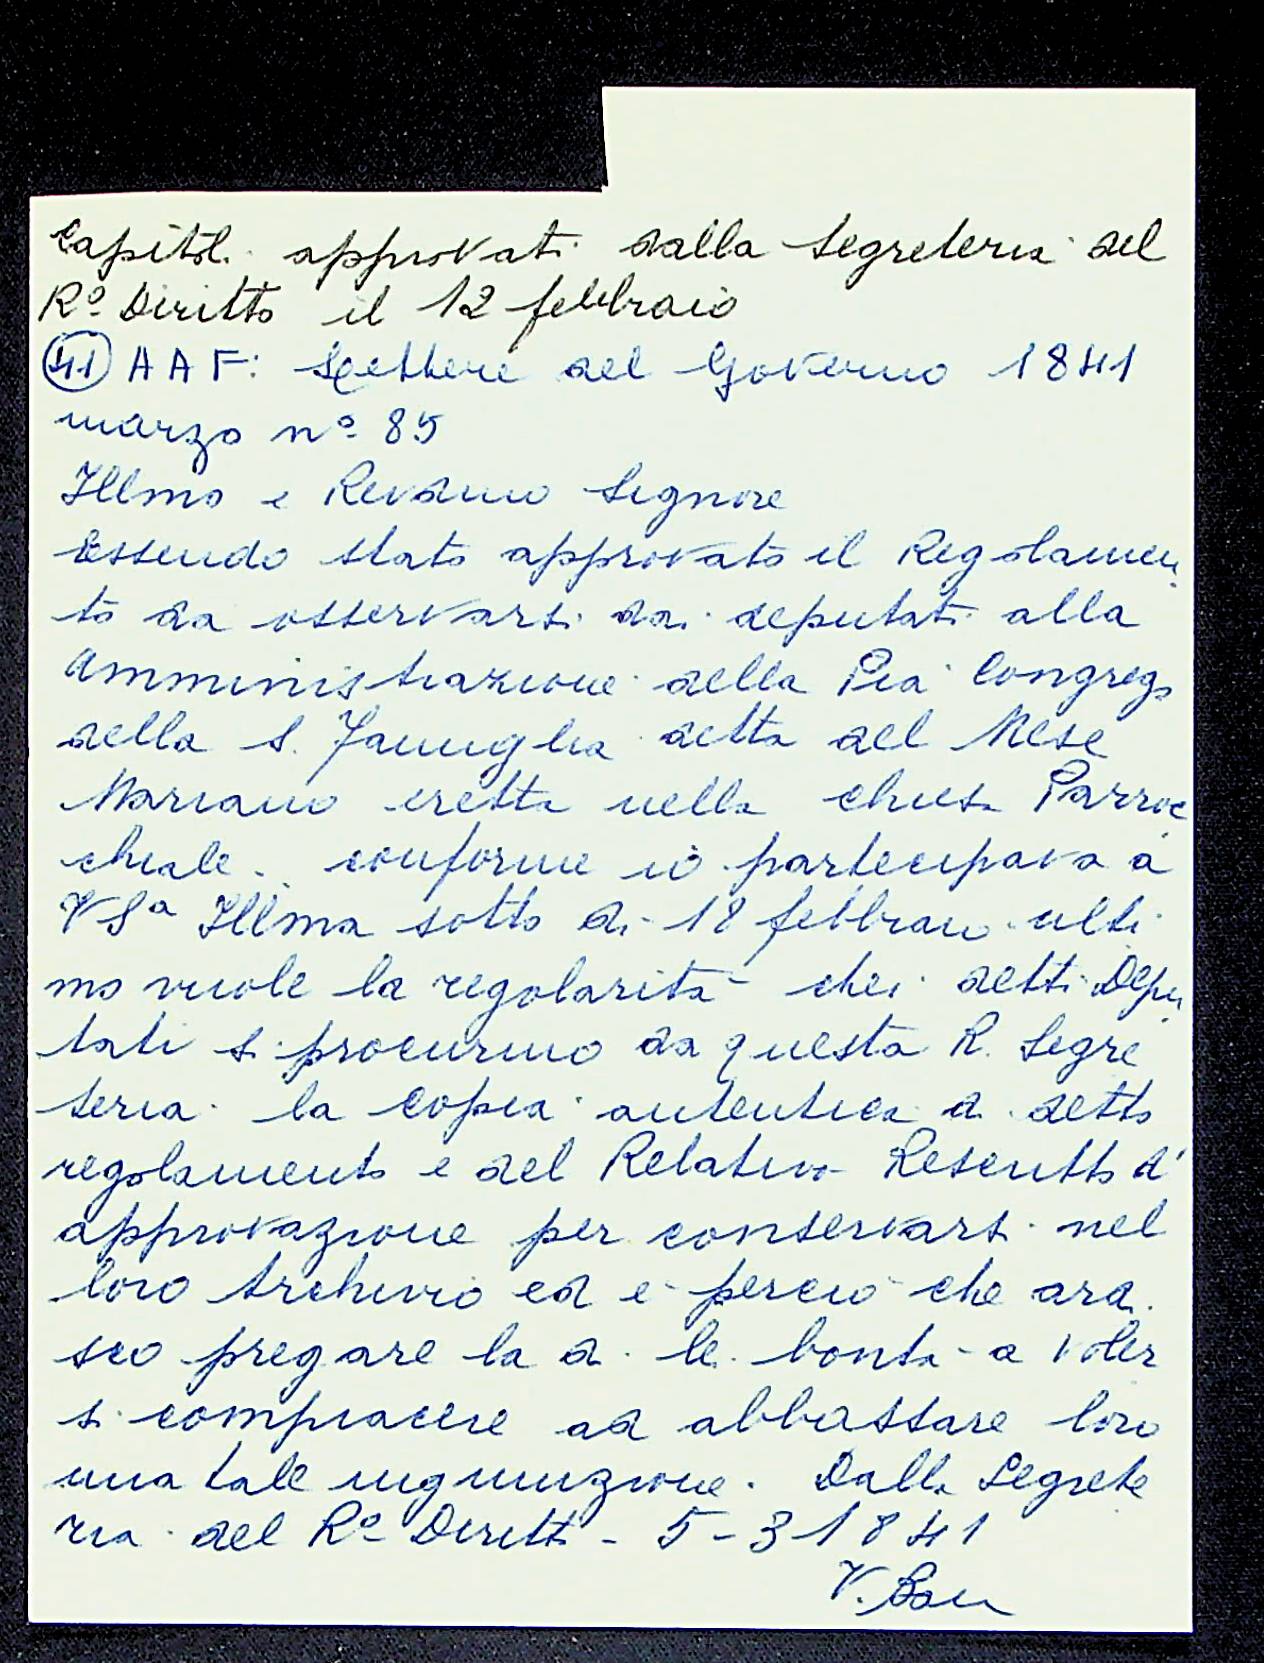 Capitoli approvati dalla Segreteria del
Rº Diritto il 12 febbraio
(41) AAF: Lettere del Governo 1841
marzo nº 85
Illmo e Revdmo Signore
Essendo stato approvato il Regolamen
to da osservarsi dai deputati alla
Amministrazione della Pia Congreg
della S. Famiglia detta del Mese
Mariano eretta nella chiesa Parroc
chiale. conforme io partecipava a
VSª Illma sotto di 18 febbraio ulti
mo vuole la regolarità che i detti Depu
tati si procurino da questa R. Segre
teria la copia autentica di detto
regolamento e del Relativo Rescritto d'
approvazione per conservarsi nel
loro Archivio ed e perciò che ardi
sco pregare la di le bontà a voler
si compiacere ad abbassare loro
una tale ingiunzione. Dalla Segrete
ria del Rº Diritto - 5-3 1841
V.